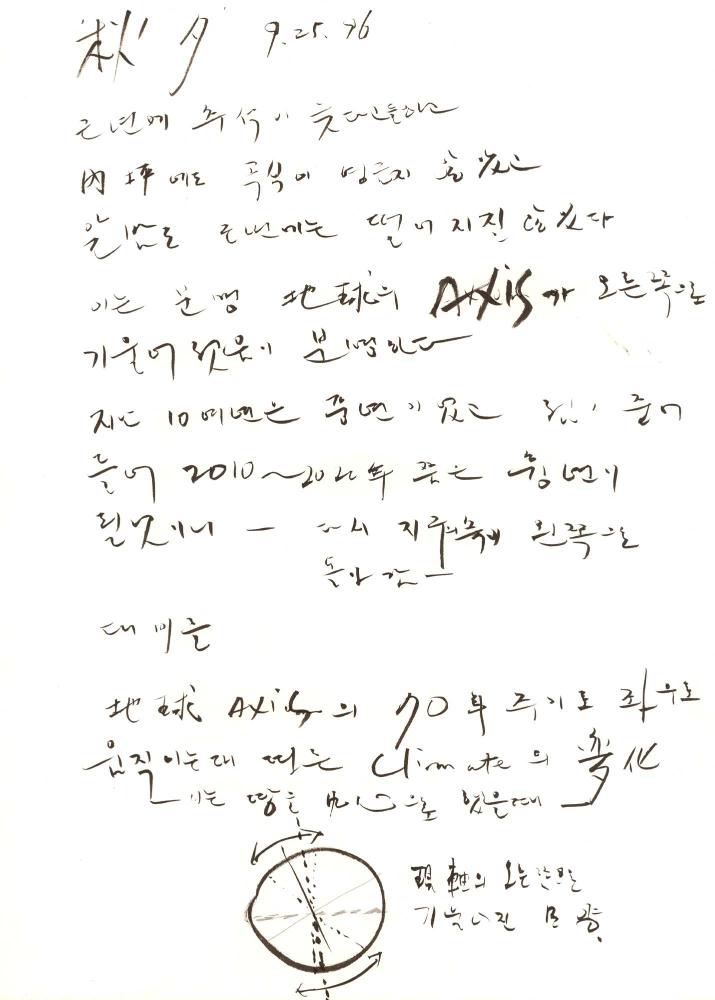 秋夕 9.25.96
근년에 추석이 늦다고들하고
內坪에도 곡식이 영글지 않았고
알밤도 근년에는 떨어지질 않았다
이는 분명 地球의 AXIS가 오른쪽으로
기울어졌음이 분명하다
지난 10여년은 풍년이 었고 점점 줄어
들어 2010~2020年 쯤은 흉년이
될것이니 — 다시 지구의축이 왼쪽으로
돌아간—
대비를
地球 AXIS의 70年 주기로 좌우로
움직이는데 따른 Climate의 變化
이는 땅을 中心으로 했을때
現軸의 오른쪽으로
기울어진 모양.